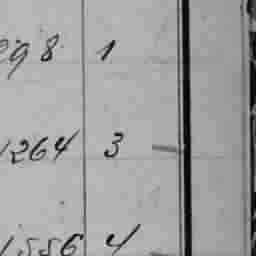 298 1
1264 3
1556 4